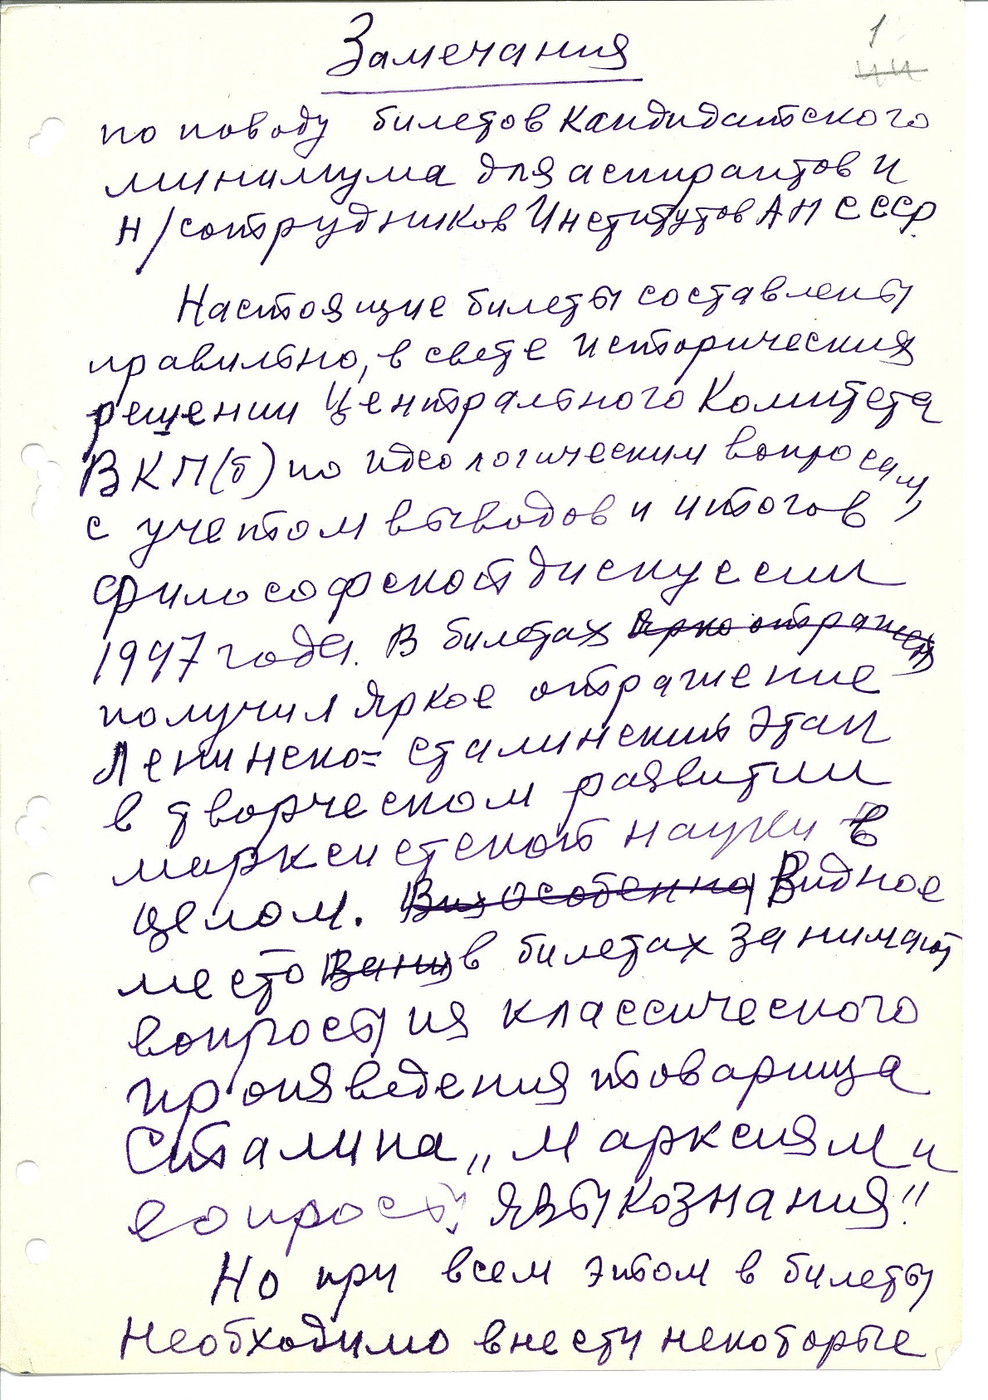 1
Замечания
по поводу билетов кандидатского
минимума для аспирантов и
н/сотрудников Институтов АН СССР.
Настоящие билеты составлены
правильно, в свете исторических
решении Центрального Комитета
ВКП(б) по идеологическим вопросам,
с учетом выводов и итогов
философской дискуссии
1947 года. В билетах ярко отражен
получил яркое отражение
Ленинско=сталинский этап
в творческом развитии
марксистской науки в
целом. Особенно Видное
место в билетах занимают
вопросы из классического
произведения товарища
Сталина „Марксизм и
вопросы языкознания"
Но при всем этом в билеты
необходимо внести некоторые